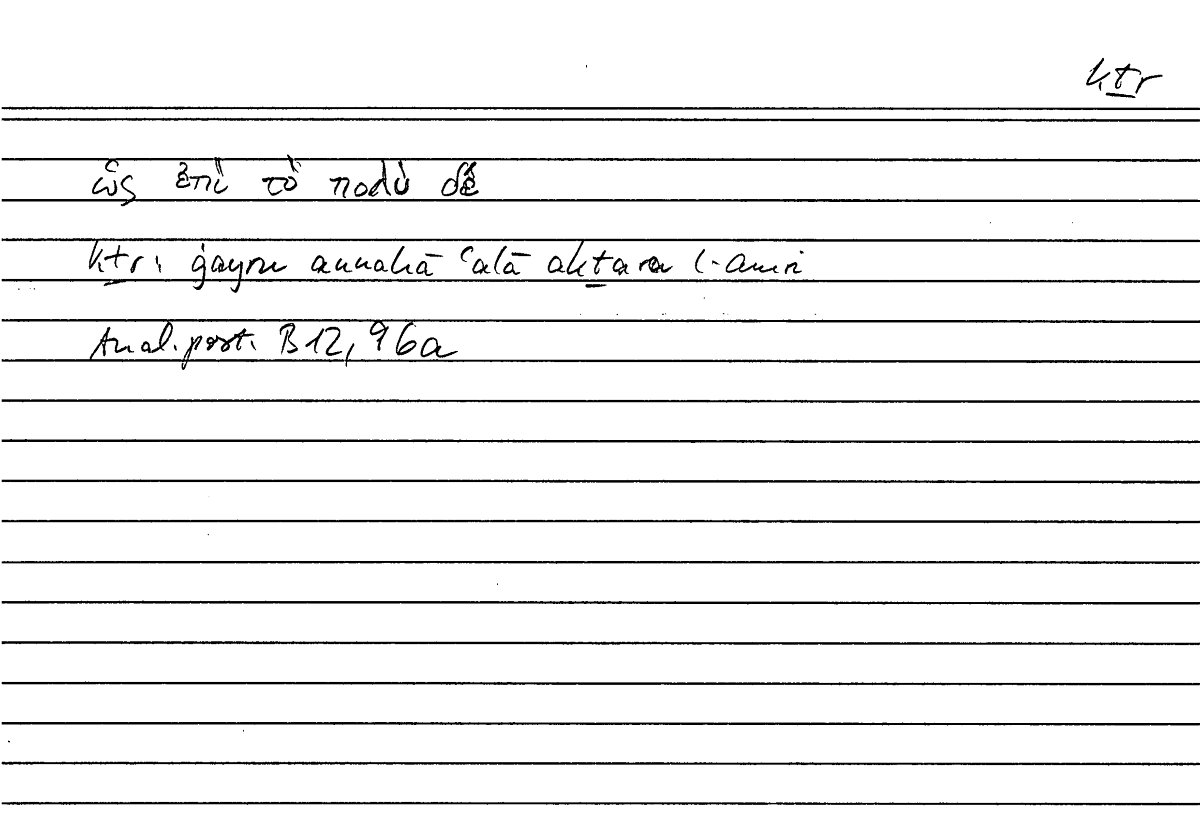 kṯr
ὡς ἐπὶ τὸ πολὺ δὲ
kṯr: ġayru annahā ʿalā akṯara l-amri
Anal. post. B12, 96a